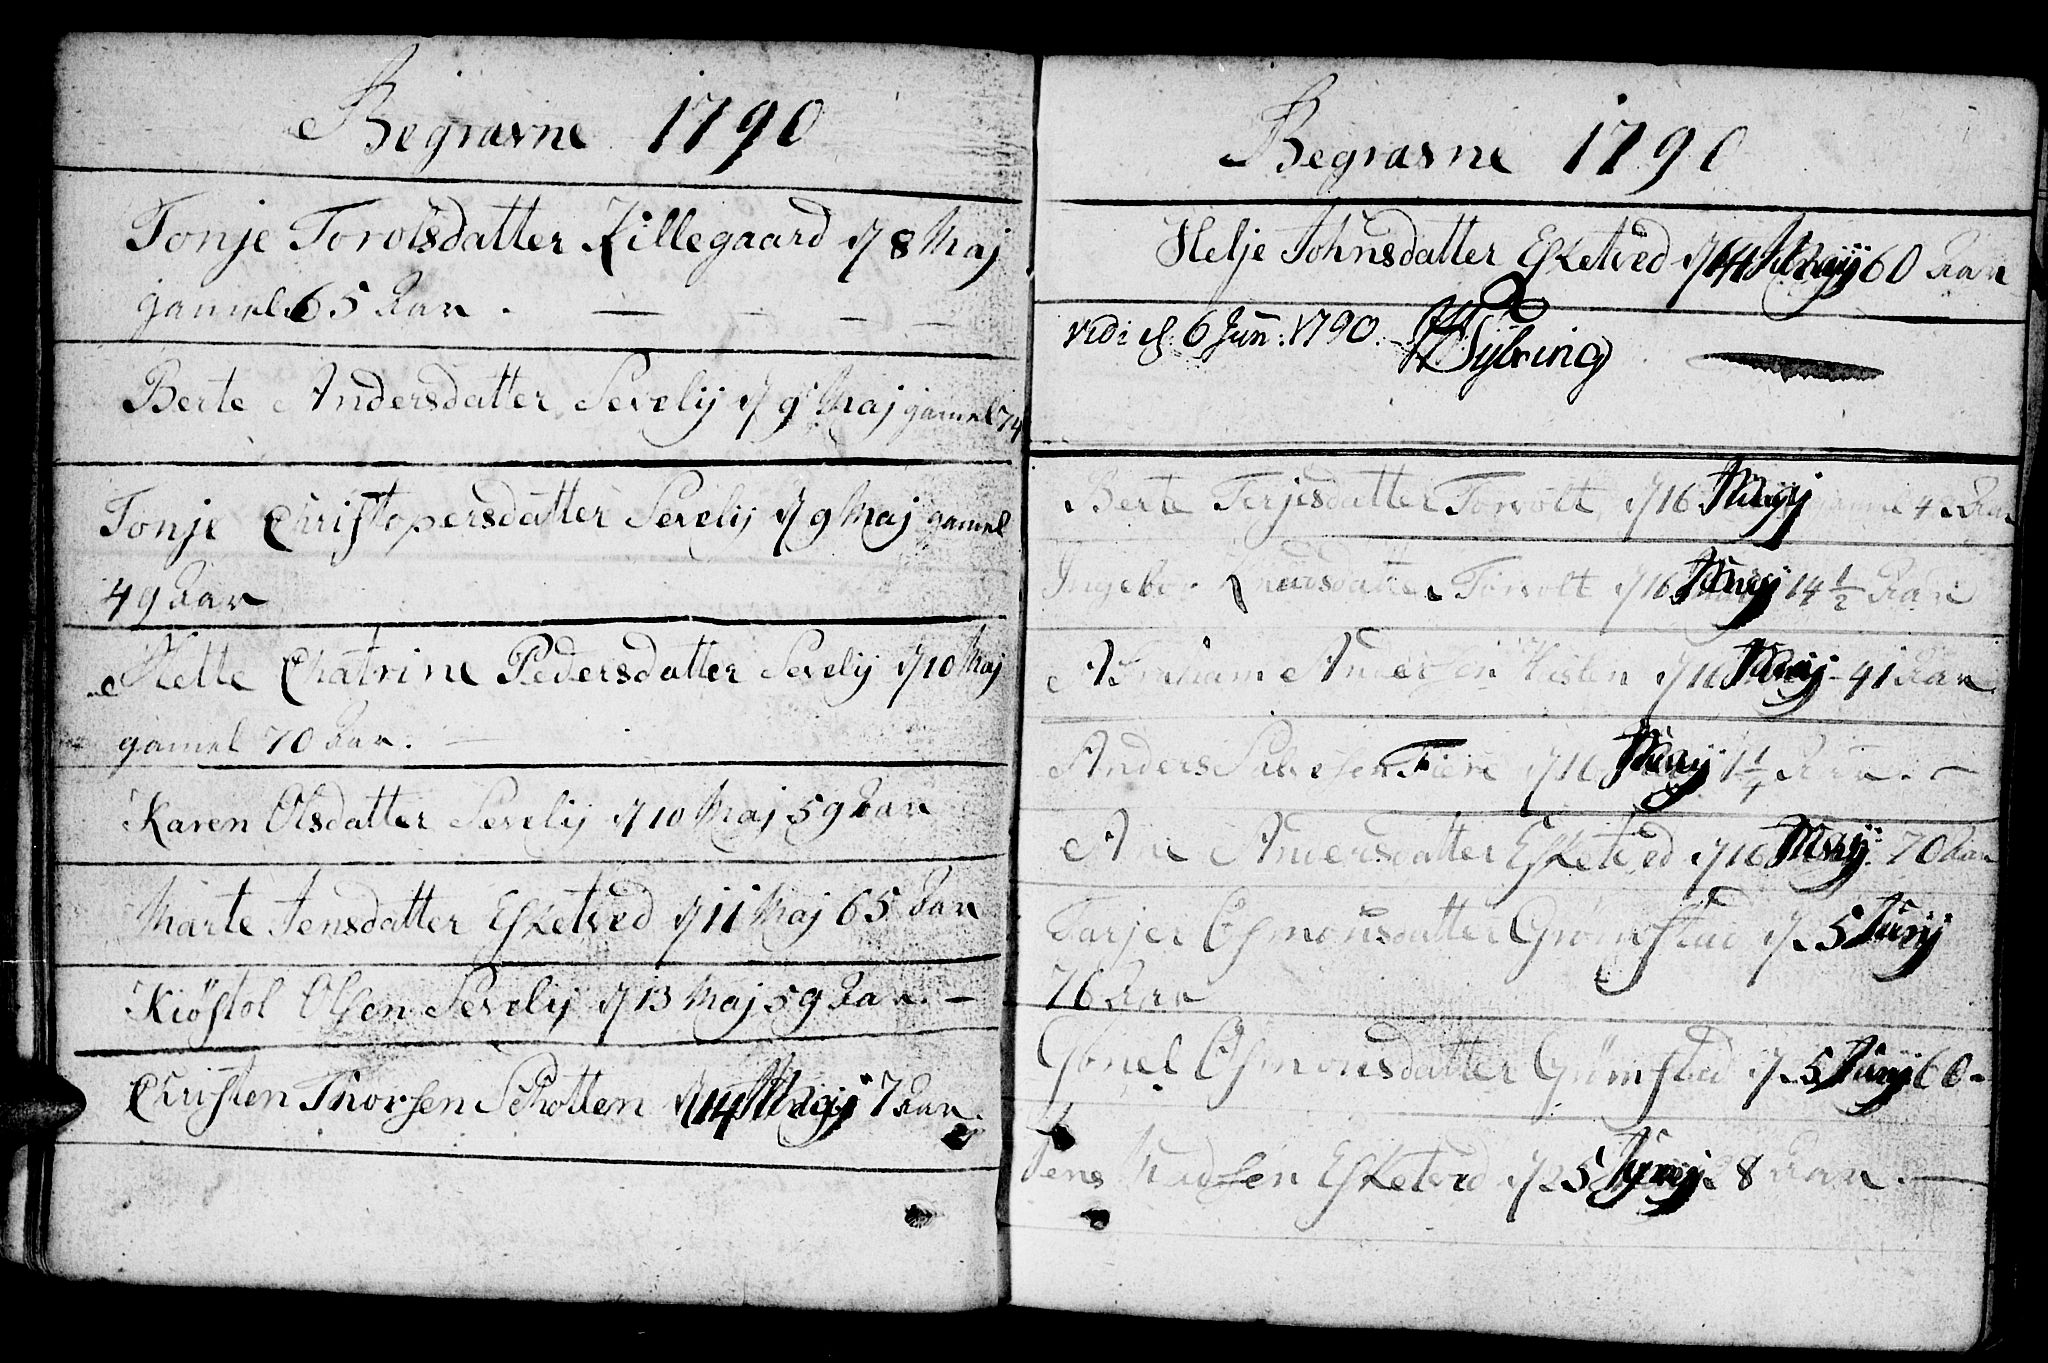 Begravne 1790
Tonje Torolsdatter Lillegaard d 8 Maj
gamel 65 Aar.
Berte Andersdatter Sevelij d 9 Maj gamel 74
Tonje Christopersdatter Sevelij d 9 Maj gamel
49 Aar
Mette Chatrine Pedersdatter Sevelij d 10 Maj
gamel 70 Aar. —
Karen Olsdatter Sevelij d 10 Maj 59 Aar
Marte Jensdatter Esketved d 11 Maj 65 Aar
Kiöstol Olsen Sevelij d 13 Maj 59 Aar. —
Christen Thorsen Schotten d 14 Maij 7 Aar.
Begravne 1790
Helje Johnsdatter Esketved d 14 60 Aar
vidi d. 6 Jun: 1790.
Berte Terjesdatter Torvolt d 16 gamel 4 Aar
Ingebor Knudsdatter Torvolt d 16 14 1/2 Aar
Abraham Andersen Histen d 16 41 Aar
Anders Salvesen Fiere d 16 1 Aar. —
Ane Andersdatter Esketved d 16 70 Aar
Tarjer Osmonsdatter Grömstad d. 5 Junij
76 Aar
Gonel Osmonsdatter Grömstad d. 5 Junij 60
Jens Madsen Esketved d 25 Junij 8 Aar. —